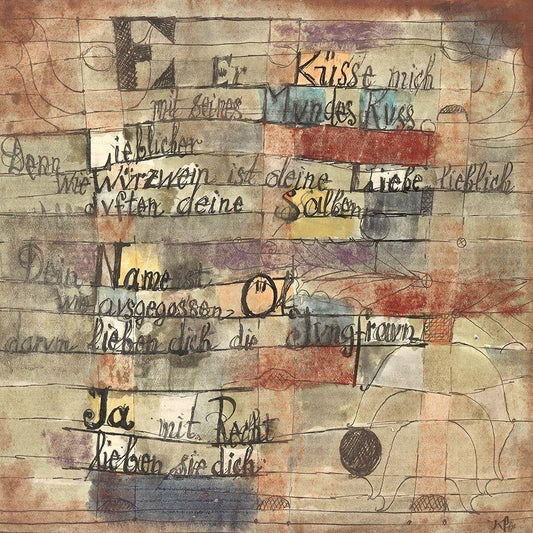 E Er Küsse mich
mit seines Mundes Kuss
Denn Lieblicher
wie Würzwein ist deine Liebe lieblich
duften deine Salben
Dein Name ist
wie ausgegossen Öl,
darum lieben dich die Jungfraun
Ja mit Recht
lieben sie dich